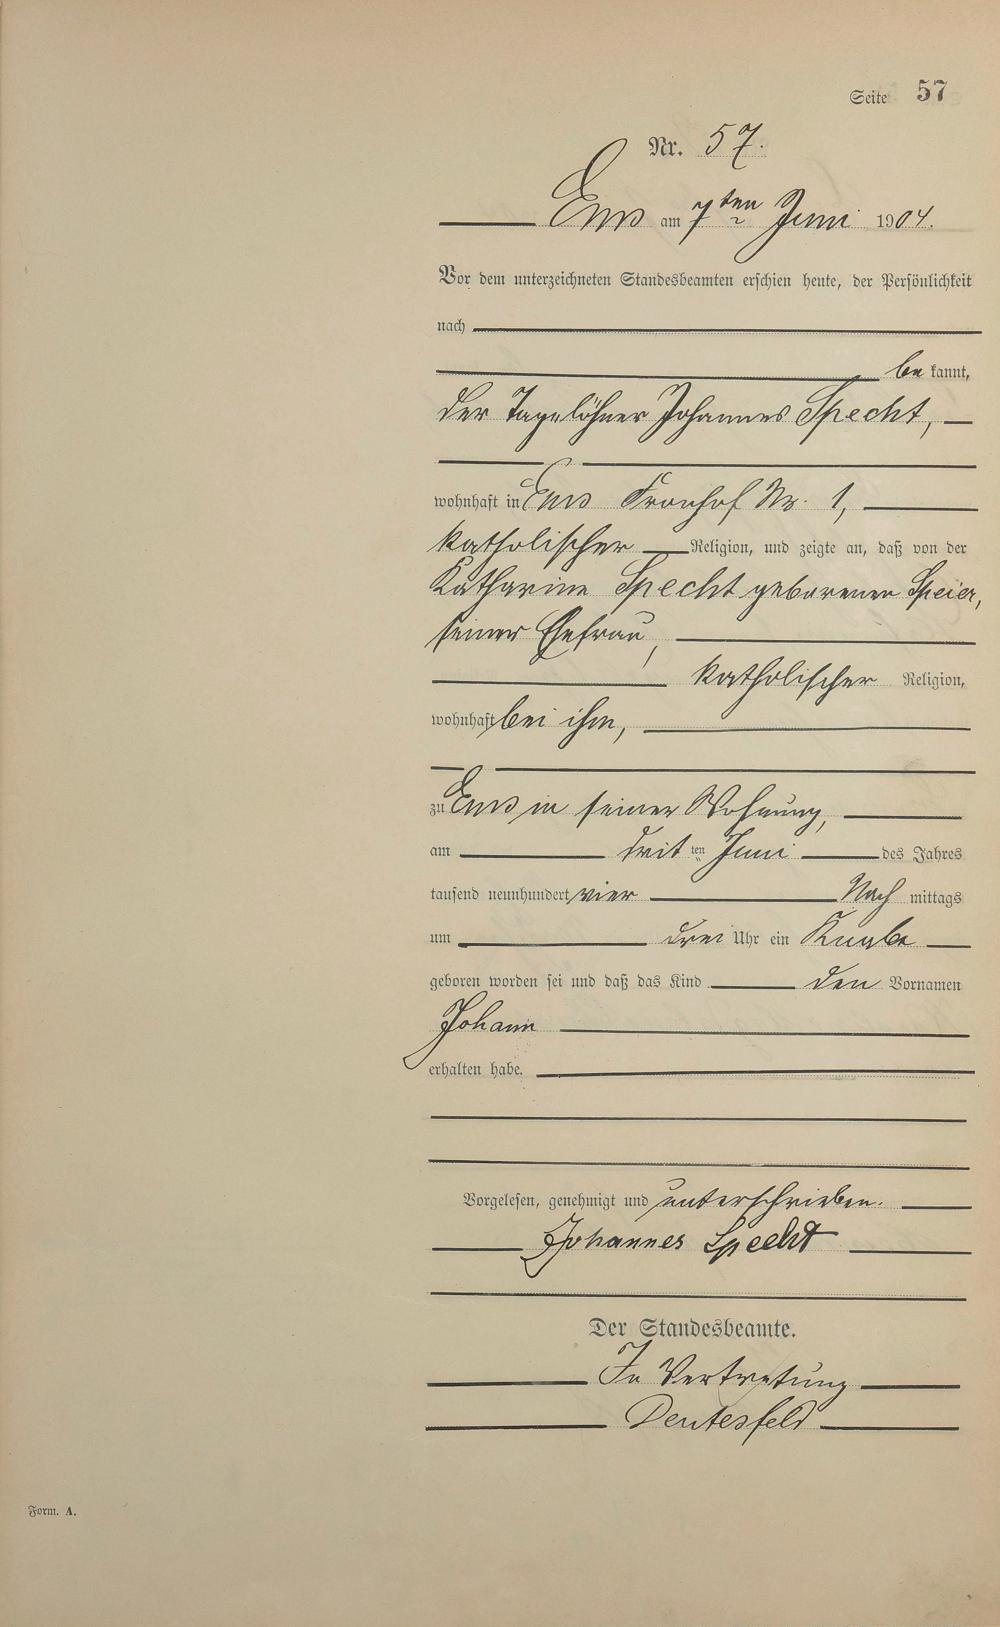 Seite 57
Nr. 57.
Ems am 7ten Juni 1904.
Vor dem unterzeichneten Standesbeamten erschien heute, der Persönlichkeit
nach
bekannt,
der Tagelöhner Johannes Specht,
wohnhaft in Ems Fronhof Nr. 1,
katholischer Religion, und zeigte an, daß von der
Katharine Specht geborenen Speier,
seiner Ehefrau,
katholischer Religion,
wohnhaft bei ihm,
zu Ems in seiner Wohnung,
am dritten Juni des Jahres
tausend neunhundert vier Nachmittags
um drei Uhr ein Knabe
geboren worden sei und daß das Kind den Vornamen
Johann
erhalten habe.
Vorgelesen, genehmigt und unterschrieben.
Johannes Specht
Der Standesbeamte.
In Vertretung
Deutesfeld
Form. A.